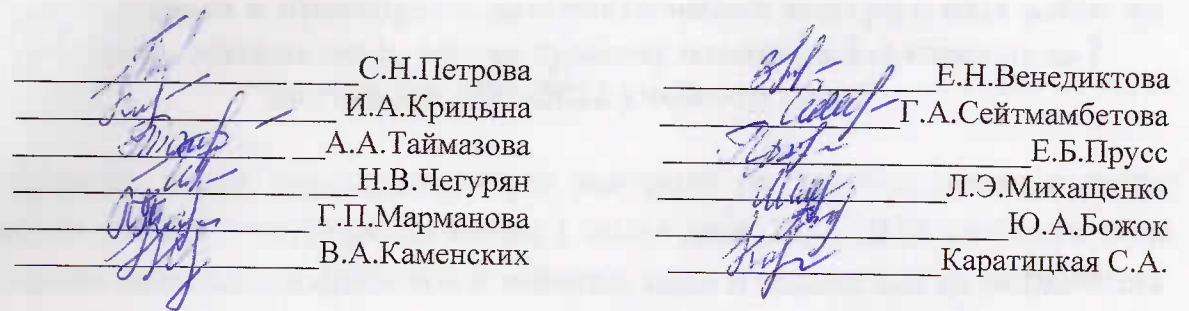 С.Н.Петрова
И.А.Крицына
А.А.Таймазова
Н.В.Чегурян
Г.П.Марманова
В.А.Каменских
Е.Н.Венедиктова
Г.А.Сейтмамбетова
Е.Б.Прусс
Л.Э.Михащенко
Ю.А.Божок
Каратицкая С.А.